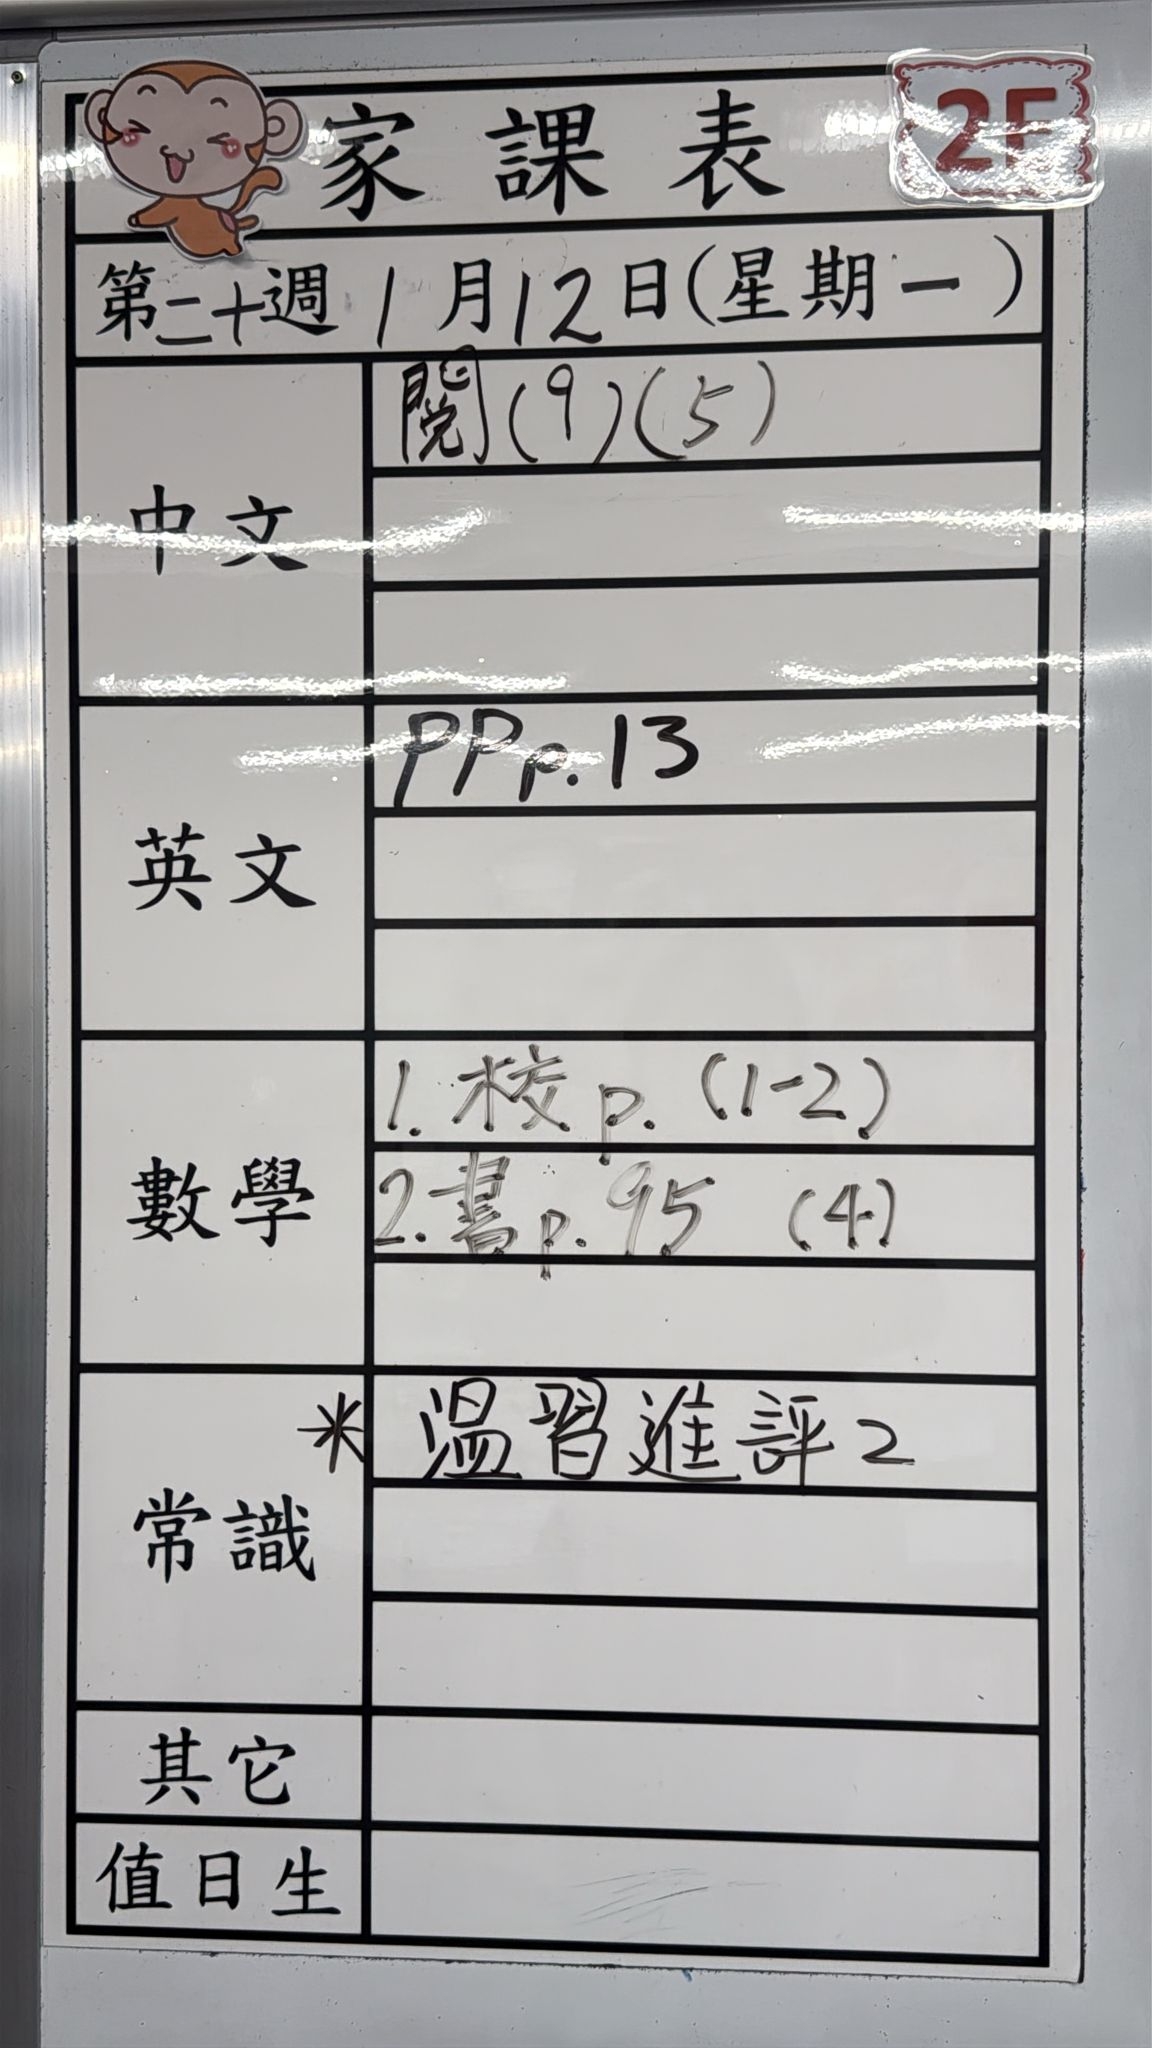 家課表
2F
第二十週 1月12日(星期一)
中文
閱(9)(5)
英文
PP p.13
數學
1. 校 p. (1-2)
2. 書 p. 95 (4)
常識
* 溫習進評2
其它
值日生